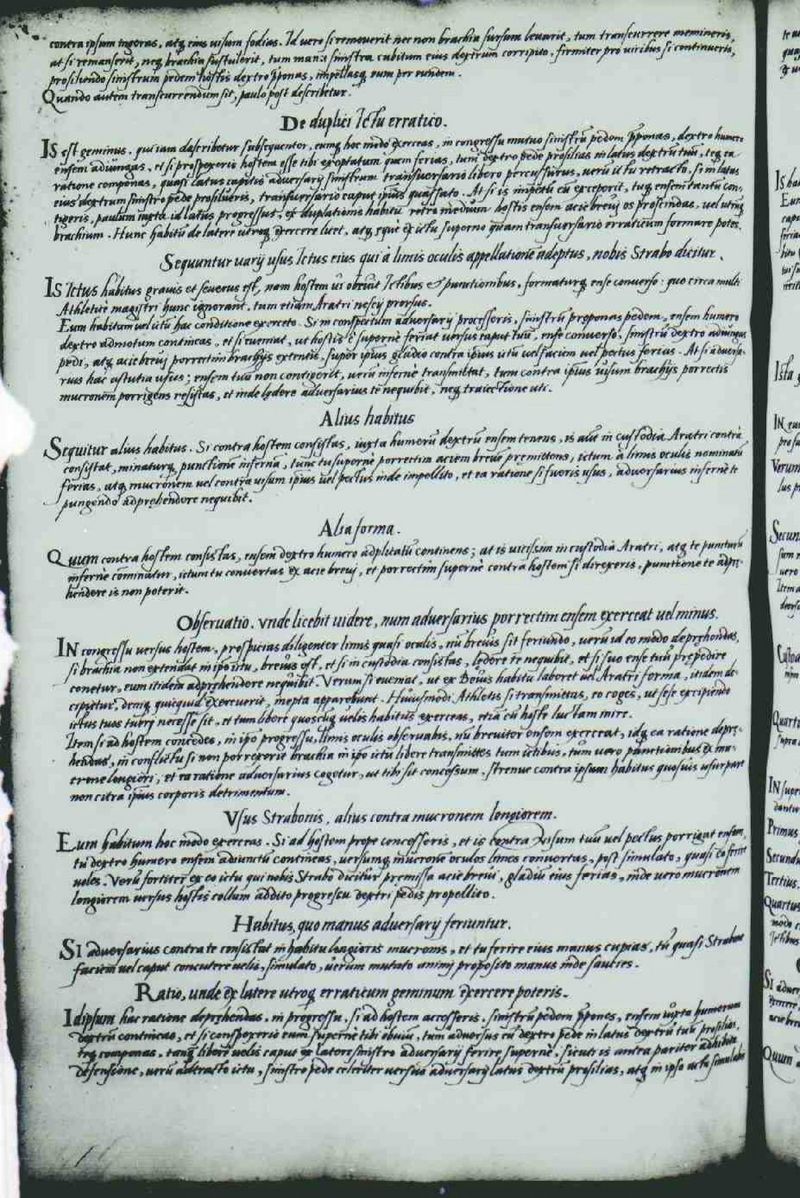 contra ipsum ingeras, atq eius visum fodias. Id vero si removerit nec non brachia sursum levarit, tum transcurrere memineris,
at si remanserit, neq brachia sustulerit, tum manu sinistra cubitum eius dextrum corripito, firmiter pro viribus si continueris,
prosiliendo sinistrum pedem hostis dextro pponas, impellasq eum per eundem.
Quando autem transcurrendum sit, paulo post describetur.
De duplici Ictu erratico.
IS est geminus, qui iam describetur subsequenter, eumq hoc modo exerceas, in congressu mutuo sinistrũ pedem pponas, dextro humero
ensem adiungas, et si prospexeris hostem esse tibi exoptatum quem ferias, tum dextro pede prosilias in latus dextrũ tuũ, teq ea
ratione componas, quasi latus capitis adversarij sinistrum transversario libero percussurus, verũ ictu retracto, si in latus
eius dextrum sinistro pede prosilueris, transversario caput ipsius quassato. At si is impetũ eũ exceperit, tuq ensem tantũ con-
tigeris, paulum iuxta id latus progressus, ex duplationis habitu retro medium hostis ensem acie brevi os proscindas, vel utrũq
brachium. Hunc habitũ de latere utroq exercere licet, atq eque ex ictu superno quam transversario erraticum formare potes.
Sequuntur varij usus Ictus eius qui a limis oculis appellationẽ adeptus, nobis Strabo dicitur.
IS Ictus habitus gravis et severus est, nam hostem vi obruit Ictibus et punctionibus, formaturq ense converso: quo circa multi
Athleticæ magistri hunc ignorant, tum etiam Aratri nescij prorsus.
Eum habitum vel ictũ hac conditione exerceto. Si in conspectum adversarij processeris, sinistrũ preponas pedem, ensem humero
dextro admotum contineas, et si eveniat, ut hostis è supernè feriat versus caput tuũ, ense converso, sinistrũ dextro adiungas
pedi, atq acie brevi porrectim brachijs extentis, super ipsius gladio contra ipsius ictũ vel faciem vel pectus ferias. At si adversa-
rius hac astutia usus, ensem tuũ non contigerit, verũ infernè transmittat, tum contra ipsius visum brachijs porrectis
mucronem porrigens resistas, et inde lędere adversarius te nequibit, neq traiectione uti.
Alius habitus
Sequitur alius habitus. Si contra hostem consistas, iuxta humerũ dextrũ ensem tenens, is autẽ in custodia Aratri contrà
consistat, minaturq punctione inferna, tunc tu supernè porrectim aciem brevẽ premittens, ictum à limis oculis nominatũ
ferias, atq mucronem vel contra visum ipsius vel pectus inde impellito, et ea ratione si fueris usus, adversarius infernè te
pungendo adprehendere nequibit.
Alia forma.
Quum contra hostem consistas, ensem dextro humero adplicatũ continens; at is vicissim in custodia Aratri, atq te puncturũ
infernè cominatur, ictum tu convertas ex acie brevi, et porrectim supernè contra hostem si direxeris, punctione te adpre-
hendere is non poterit.
Observatio, unde licebit videre, num adversarius porrectim ensem exerceat vel minus.
IN congressu versus hostem, prospicias diligenter limis quasi oculis, nũ brevius sit feriundo, verũ id eo modo deprehendas,
si brachia non extendat in ipso ictu, brevius est, et si in custodia consistas, lędere te nequibit, et si suo ense tuũ prępedire
conetur, eum itidem adprehendere nequibit. Verum si eveniat, ut ex Bovis habitu laboret vel Aratri forma, itidem de-
cipietur, deniq quicquid exercuerit, inepta apparebunt. Huiusmodi Athletis si transmittas, eo coges, ut sese excipiendo
ictus tuos tueri necesse sit, et tum liberè quoscũq veles habitus exerceas, etiã cũ hoste luctam inire.
Item si ad hostem concedes, in ipso progressu, limis oculis observabis, nũ breviter ensem exerceat, idq ea ratione depre-
hendas, in conflictu si non porrexerit brachia in ipso ictu libere transmittes tum ictibus, tum vero punctionibus ex mu-
crone longiori, et ea ratione adversarius cogetur, ut tibi sit concessum, strenue contra ipsum habitus quosvis usurpare
non citra ipsius corporis detrimentum.
Usus Strabonis, alius contra mucronem longiorem.
Eum habitum hoc modo exerceas. Si ad hostem prope concesseris, et is contra visum tuũ vel pectus porrigat ensem,
tu dextro humero ensem adiunctũ contineas, versumq mucronẽ oculos limos convertas, post simulato, quasi eo ferire
veles. Verũ fortiter ex eo ictu qui nobis Strabo dicitur premissa acie brevi, gladiũ eius ferias, inde vero mucronem
longiorem versus hostis collum addito progressu dextri pedis propellito.
Habitus, quo manus adversarij feriuntur.
SI adversarius contra te consistat in habitu longioris mucronis, et tu ferire eius manus cupias, tũ quasi Strabone
faciem vel caput concutere velis, simulato, verum mutato animi proposito manus inde saucies.
Ratio, unde ex latere utroq erraticum geminum exercere poteris.
Idipsum hac ratione deprehendas. in progressu, si ad hostem accesseris, sinistrũ pedem pponas, ensem iuxta humerum
dextrũ contineas, et si conspexeris eum supernè tibi obviũ, tum adversus eũ dextro pede in latus dextrũ tuũ prosilias,
teq componas, tanq liberè velis caput ex latere sinistro adversarij ferire supernè, sicuti is contra pariter adhibita
defensione, verũ adtracto ictu, sinistro pede celeriter versus adversarij latus dextrũ prosilias, atq in ipso actu simulabis